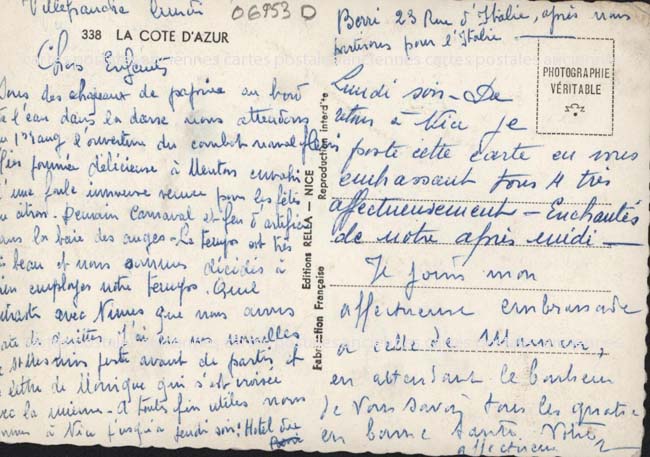 Villefranche lundi
06953 D
338 LA COTE D'AZUR
Chers Enfants
Sous des chapeaux de papier au bord
de l'eau dans la danse nous attendons
au 1er rang l'ouverture du combat naval fleuri
Après journée délicieuse à Menton envahi
d'une foule immense venue pour les fêtes
du citron. Demain Carnaval et feu d'artifice
dans la baie des anges. Le temps est très
beau et nous sommes décidés à
bien employer notre temps. Quel
contraste avec Nimes que nous avons
J'ai eu vos nouvelles
poste avant de partir et
la lettre de Monique qui s'est croisée
avec la mienne. A toutes fins utiles nous
sommes à Nice jusqu'à jeudi soir. Hotel du
Berri 23 Rue d'Italie, après nous
partirons pour l'Italie
PHOTOGRAPHIE
VÉRITABLE
Lundi soir - De
retour à Nice je
poste cette carte en vous
embrassant tous 4 très
affectueusement - Enchantés
de notre après midi -
Je joins mon
affectueuse embrassade
à celle de Maman,
en attendant le bonheur
de vous savoir tous les quatre
en bonne santé. Votre
affectueux
Editions RELLA - NICE
Reproduction interdite
Fabrication Française